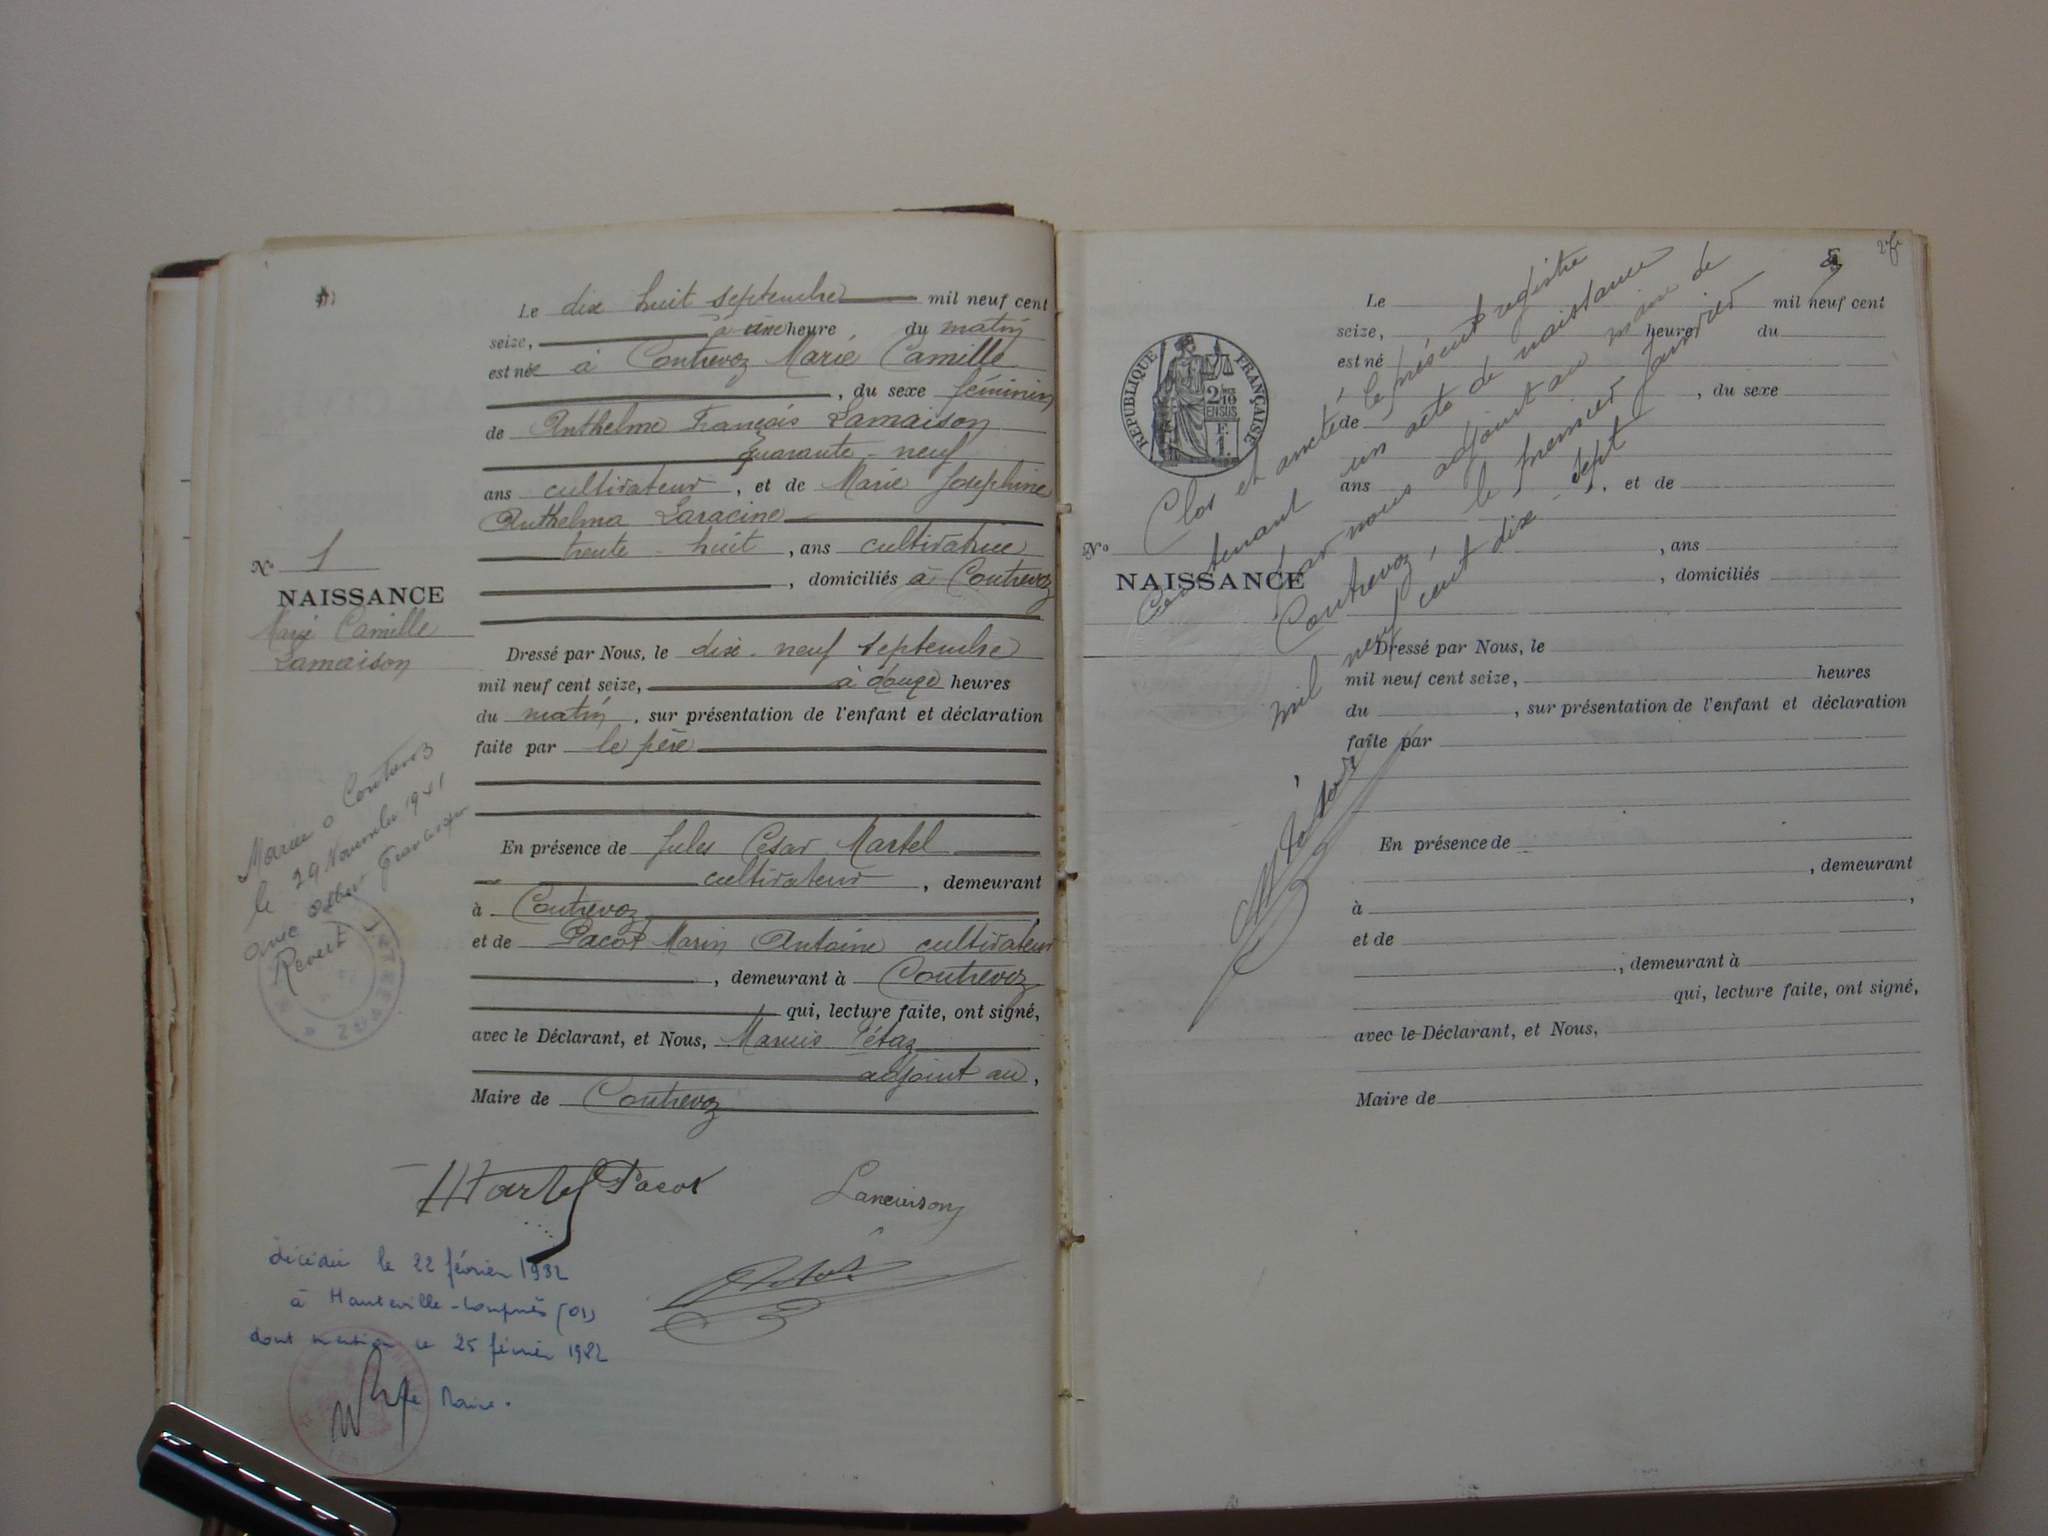 Le dix huit septembre mil neuf cent
seize, à une heure du matin
est née à Contrevoz Marie Camille
, du sexe féminin
de Anthelme François Lamaison
quarante-neuf
ans cultivateur, et de Marie Joséphine
Anthelma Laracine
trente-huit, ans cultivatrice
, domiciliés à Contrevoz
No 1
NAISSANCE
Marie Camille
Lamaison
Dressé par Nous, le dix-neuf septembre
mil neuf cent seize, à douze heures
du matin, sur présentation de l'enfant et déclaration
faite par le père
Mariée à
le 29 Novembre 1941
avec
Revert
En présence de Jules César Martel
cultivateur, demeurant
à Contrevoz,
et de Pacot Marin Antoine cultivateur
, demeurant à Contrevoz
qui, lecture faite, ont signé,
avec le Déclarant, et Nous, Marius Pétaz
adjoint au,
Maire de Contrevoz
Martel Pacot Lamaison
décédée le 22 février 1982
à Hauteville-Lompnès (01)
dont mention le 25 février 1982
le Maire.
5
RÉPUBLIQUE FRANÇAISE
2/10
EN SUS
1 F.
Le mil neuf cent
seize, heure du
est né
, du sexe
de
ans , et de
No , ans
NAISSANCE , domiciliés
Dressé par Nous, le
mil neuf cent seize, heures
du , sur présentation de l'enfant et déclaration
faite par
En présence de
, demeurant
à ,
et de
, demeurant à
qui, lecture faite, ont signé,
avec le Déclarant, et Nous,
Maire de
Clos et arrêté le présent registre
Contenant un acte de naissance
par nous adjoint au maire de
Contrevoz, le premier Janvier
mil neuf cent dix-sept